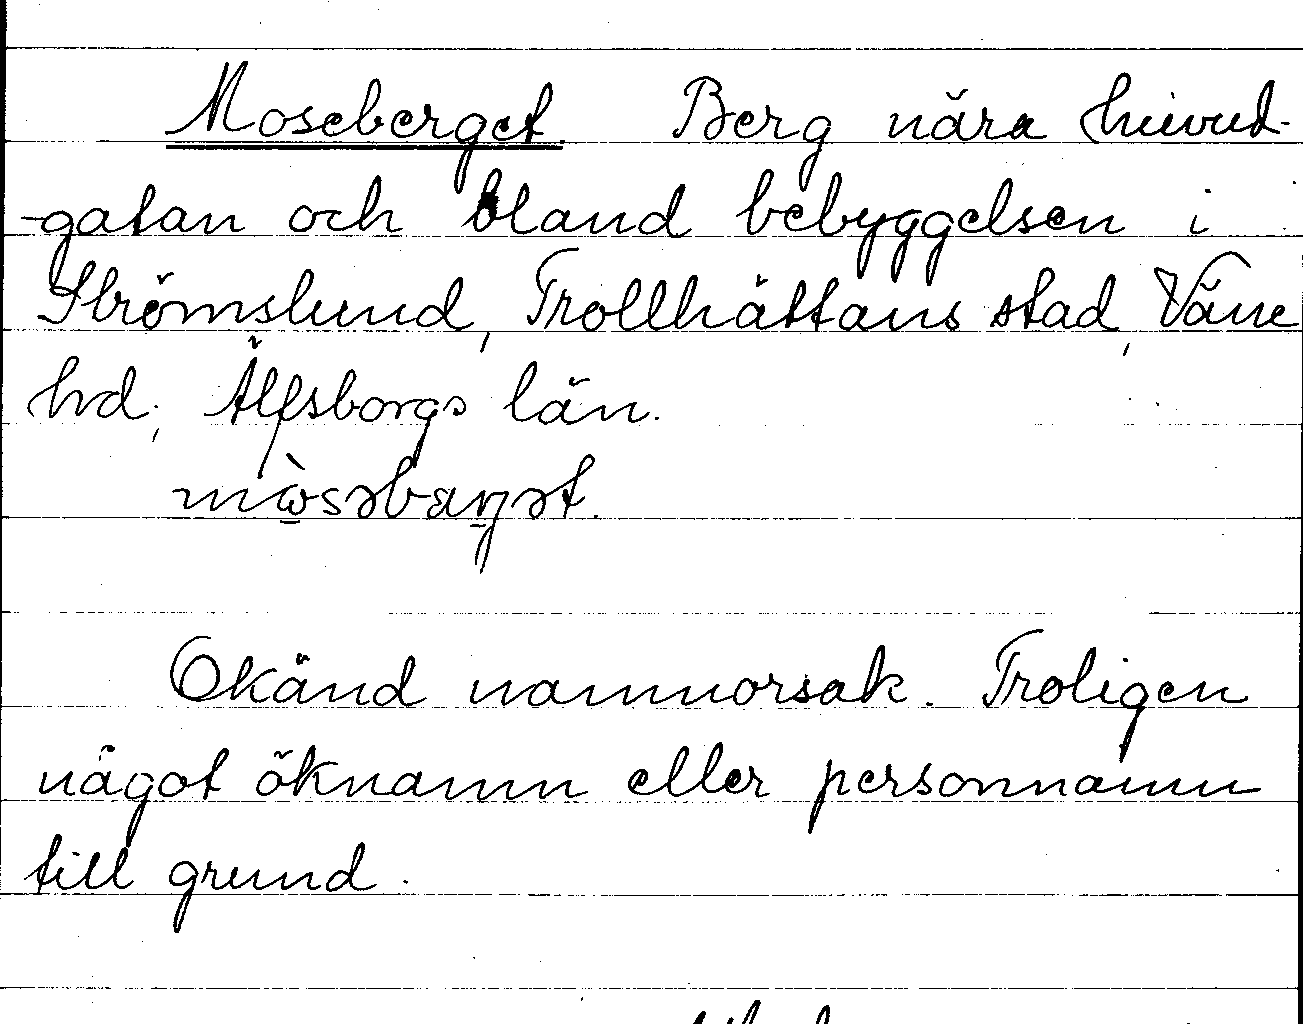 Moseberget Berg nära huvud-
-gatan och bland bebyggelsen i
Strömslund, Trollhättans stad, Väne
hd, Älfsborgs län.
mὼ̲səbaŋ̲ət.
Okänd namnorsak. Troligen
något öknamn eller personnamn
till grund.